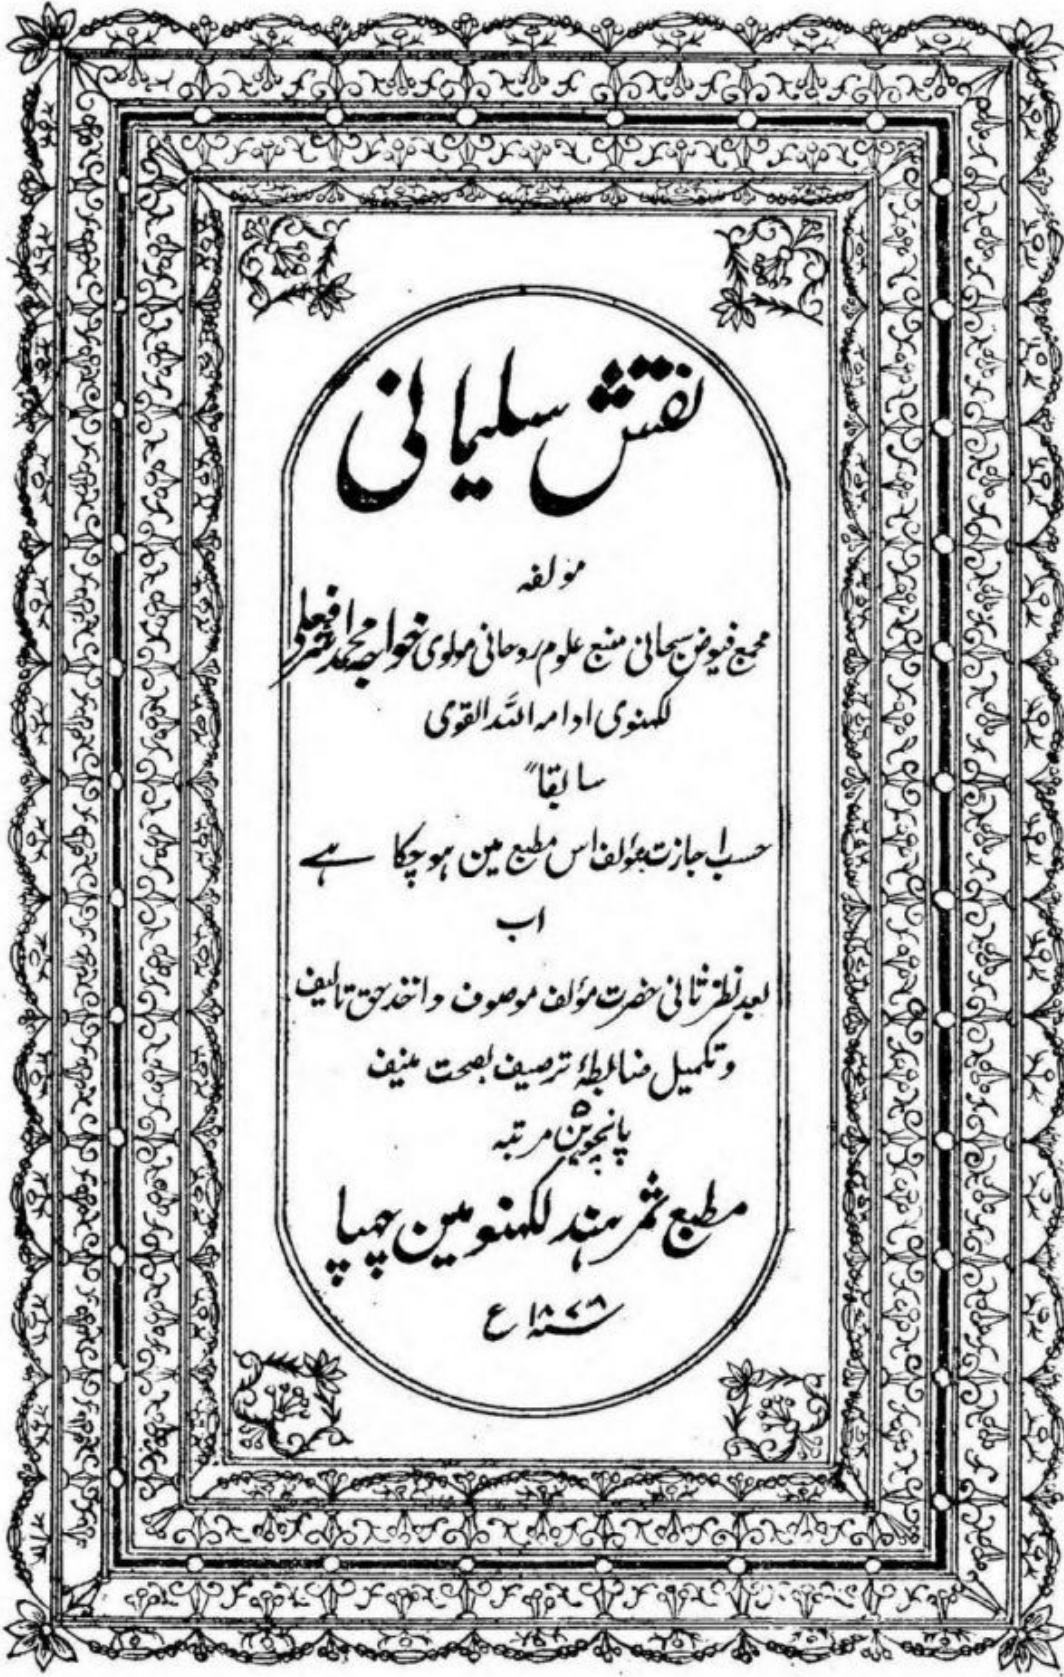 نقش سلیمانی
مولفہ
مجمع فیوض سبحانی منبع علوم روحانی مولوی خواجہ محمد اشرف علی
لکھنوی ادامہ اللہ القوی
سابقاً
حسب اجازت مؤلف اس مطبع مین ہو چکا ہے
اب
بعد نظر ثانی حضرت مؤلف موصوف و اخذ حق تالیف
و تکمیل ضابطۂ ترصیف بصحت منیف
پانچوین مرتبہ
مطبع ثمر ہند لکھنو مین چھپا